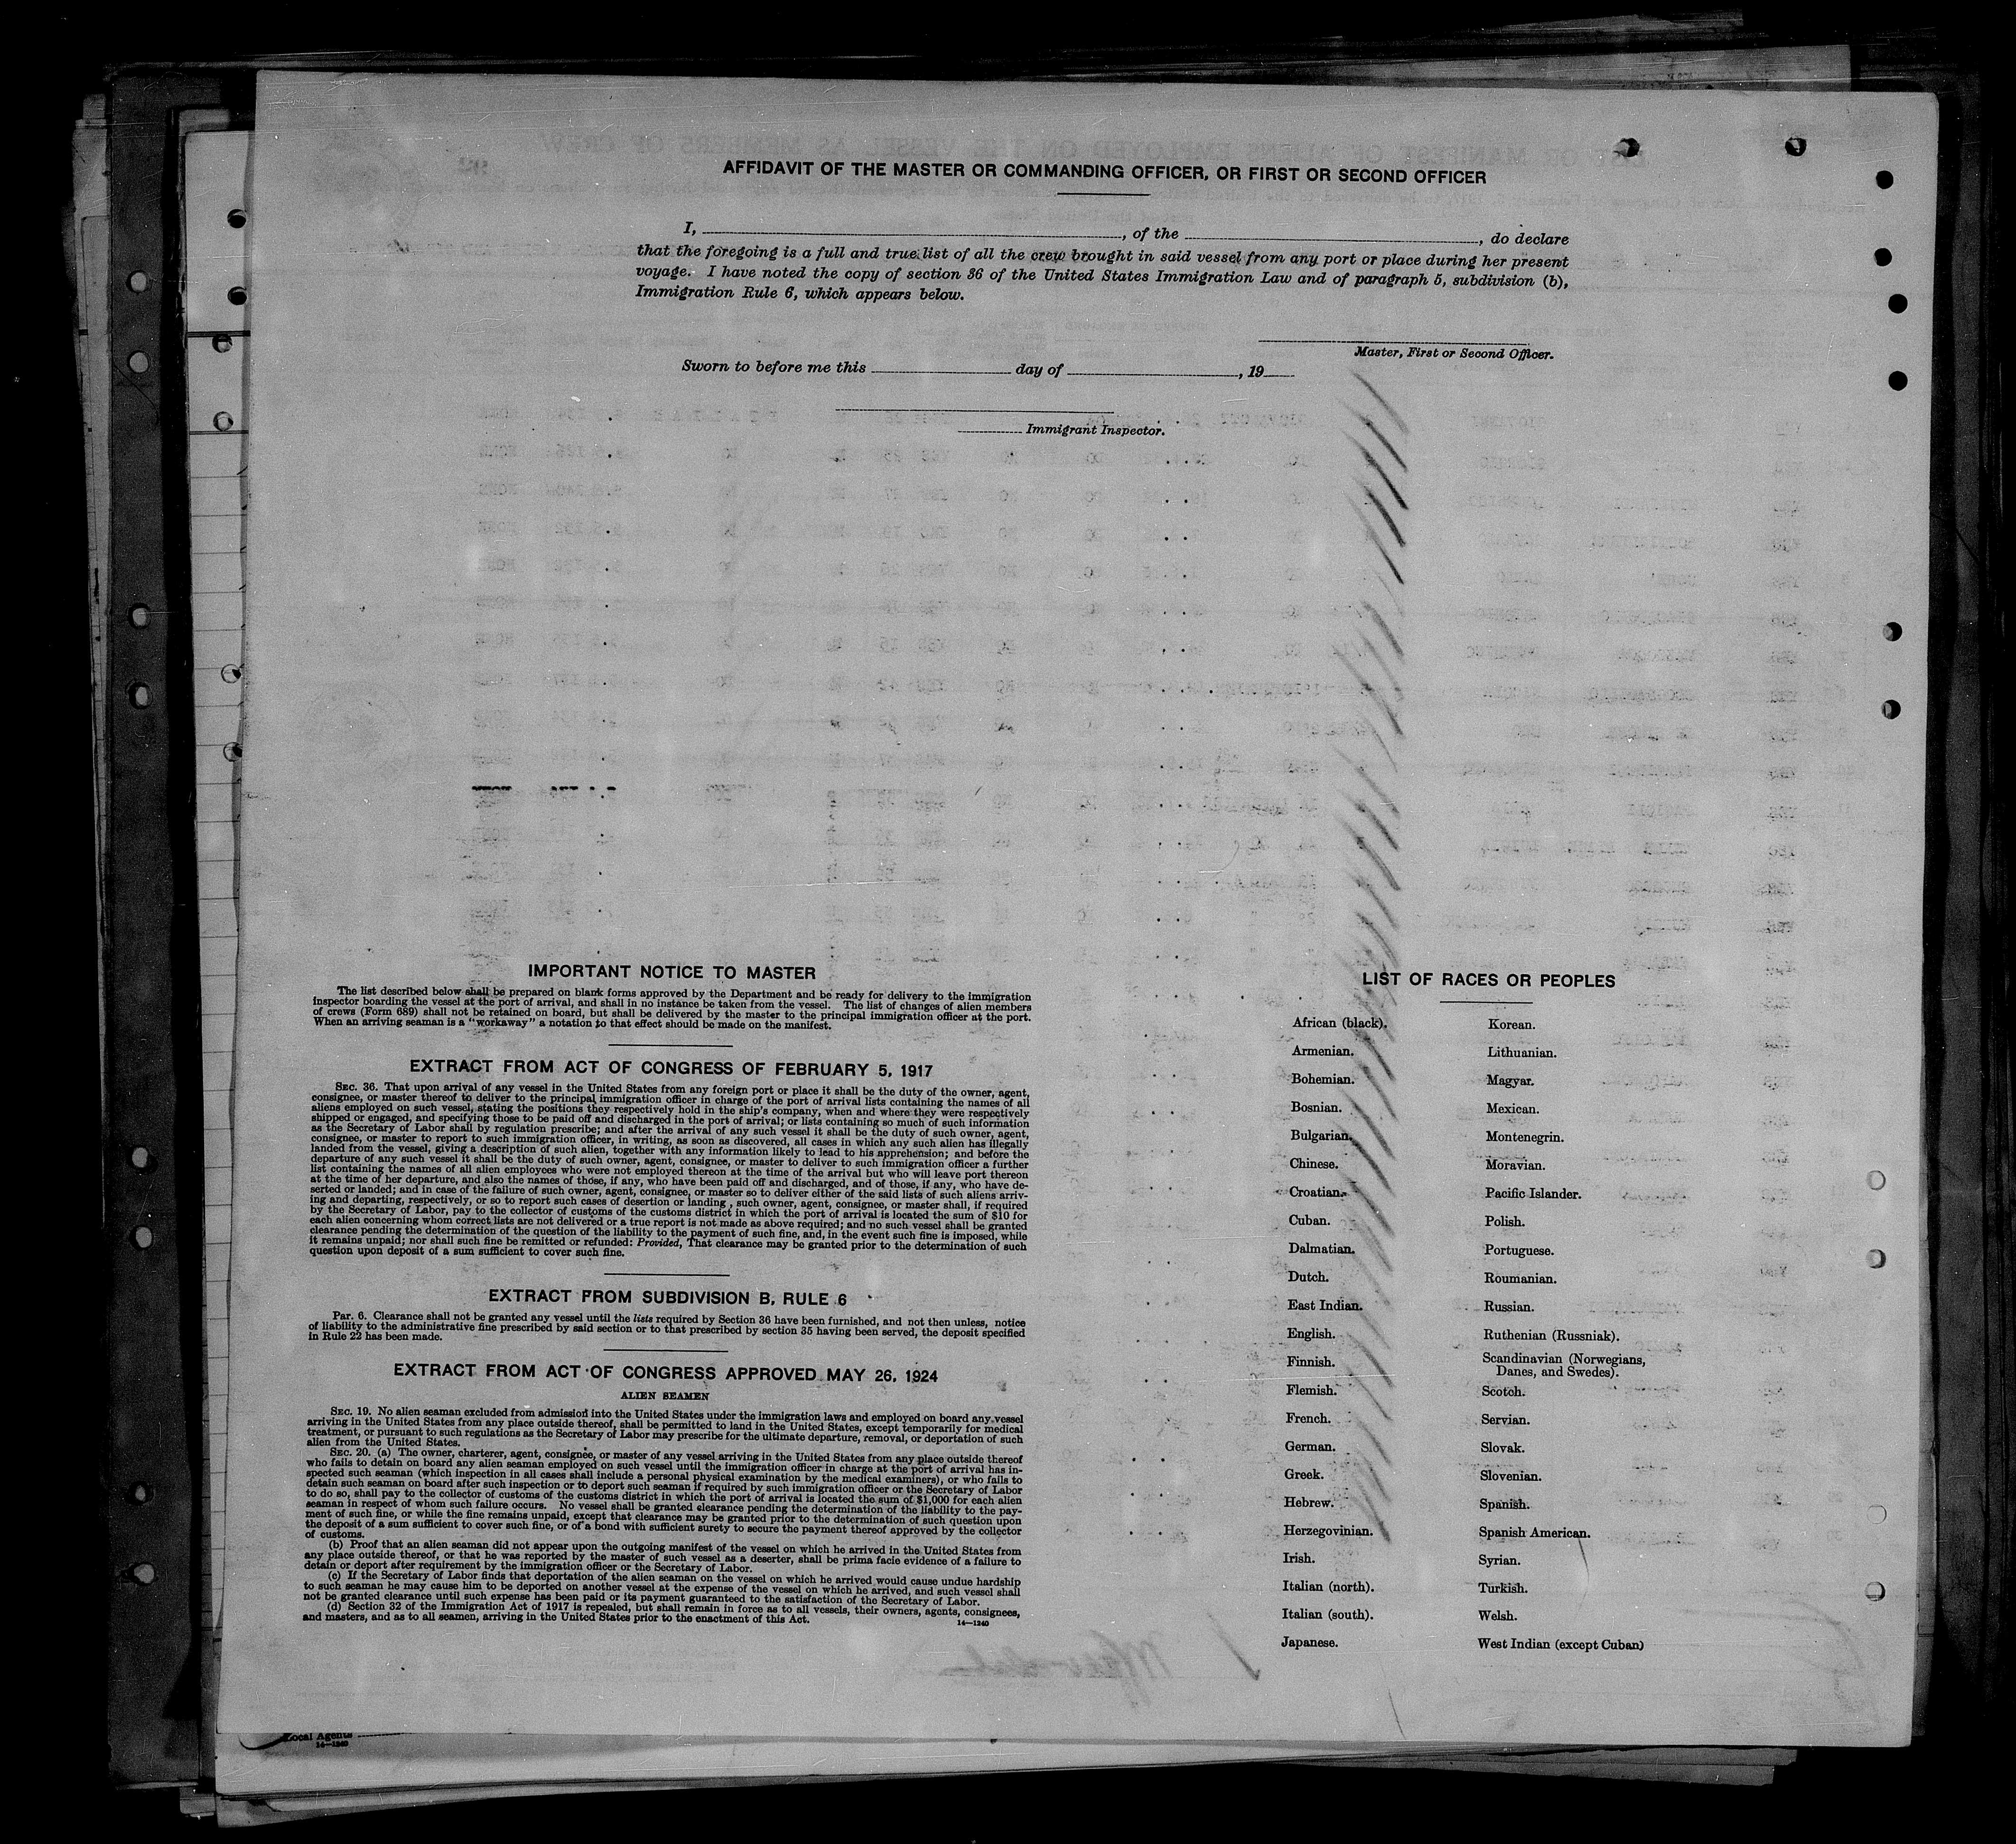 AFFIDAVIT OF THE MASTER OR COMMANDING OFFICER, OR FIRST OR SECOND OFFICER
I, , of the , do declare
that the foregoing is a full and true list of all the crew brought in said vessel from any port or place during her present
voyage. I have noted the copy of section 36 of the United States Immigration Law and of paragraph 5, subdivision (b),
Immigration Rule 6, which appears below.
Master, First or Second Officer.
Sworn to before me this day of , 19
Immigrant Inspector.
IMPORTANT NOTICE TO MASTER
The list described below shall be prepared on blank forms approved by the Department and be ready for delivery to the immigration
inspector boarding the vessel at the port of arrival, and shall in no instance be taken from the vessel. The list of changes of alien members
of crews (Form 689) shall not be retained on board, but shall be delivered by the master to the principal immigration officer at the port.
When an arriving seaman is a "workaway" a notation to that effect should be made on the manifest.
EXTRACT FROM ACT OF CONGRESS OF FEBRUARY 5, 1917
SEC. 36. That upon arrival of any vessel in the United States from any foreign port or place it shall be the duty of the owner, agent,
consignee, or master thereof to deliver to the principal immigration officer in charge of the port of arrival lists containing the names of all
aliens employed on such vessel, stating the positions they respectively hold in the ship's company, when and where they were respectively
shipped or engaged, and specifying those to be paid off and discharged in the port of arrival; or lists containing so much of such information
as the Secretary of Labor shall by regulation prescribe; and after the arrival of any such vessel it shall be the duty of such owner, agent,
consignee, or master to report to such immigration officer, in writing, as soon as discovered, all cases in which any such alien has illegally
landed from the vessel, giving a description of such alien, together with any information likely to lead to his apprehension; and before the
departure of any such vessel it shall be the duty of such owner, agent, consignee, or master to deliver to such immigration officer a further
list containing the names of all alien employees who were not employed thereon at the time of the arrival but who will leave port thereon
at the time of her departure, and also the names of those, if any, who have been paid off and discharged, and of those, if any, who have de-
serted or landed; and in case of the failure of such owner, agent, consignee, or master so to deliver either of the said lists of such aliens arriv-
ing and departing, respectively, or so to report such cases of desertion or landing , such owner, agent, consignee, or master shall, if required
by the Secretary of Labor, pay to the collector of customs of the customs district in which the port of arrival is located the sum of $10 for
each alien concerning whom correct lists are not delivered or a true report is not made as above required; and no such vessel shall be granted
clearance pending the determination of the question of the liability to the payment of such fine, and, in the event such fine is imposed, while
it remains unpaid; nor shall such fine be remitted or refunded: Provided, That clearance may be granted prior to the determination of such
question upon deposit of a sum sufficient to cover such fine.
EXTRACT FROM SUBDIVISION B, RULE 6
Par. 6. Clearance shall not be granted any vessel until the lists required by Section 36 have been furnished, and not then unless, notice
of liability to the administrative fine prescribed by said section or to that prescribed by section 35 having been served, the deposit specified
in Rule 22 has been made.
EXTRACT FROM ACT OF CONGRESS APPROVED MAY 26, 1924
ALIEN SEAMEN
SEC. 19. No alien seaman excluded from admission into the United States under the immigration laws and employed on board any vessel
arriving in the United States from any place outside thereof, shall be permitted to land in the United States, except temporarily for medical
treatment, or pursuant to such regulations as the Secretary of Labor may prescribe for the ultimate departure, removal, or deportation of such
alien from the United States.
SEC. 20. (a) The owner, charterer, agent, consignee, or master of any vessel arriving in the United States from any place outside thereof
who fails to detain on board any alien seaman employed on such vessel until the immigration officer in charge at the port of arrival has in-
spected such seaman (which inspection in all cases shall include a personal physical examination by the medical examiners), or who fails to
detain such seaman on board after such inspection or to deport such seaman if required by such immigration officer or the Secretary of Labor
to do so, shall pay to the collector of customs of the customs district in which the port of arrival is located the sum of $1,000 for each alien
seaman in respect of whom such failure occurs. No vessel shall be granted clearance pending the determination of the liability to the pay-
ment of such fine, or while the fine remains unpaid, except that clearance may be granted prior to the determination of such question upon
the deposit of a sum sufficient to cover such fine, or of a bond with sufficient surety to secure the payment thereof approved by the collector
of customs.
(b) Proof that an alien seaman did not appear upon the outgoing manifest of the vessel on which he arrived in the United States from
any place outside thereof, or that he was reported by the master of such vessel as a deserter, shall be prima facie evidence of a failure to
detain or deport after requirement by the immigration officer or the Secretary of Labor.
(c) If the Secretary of Labor finds that deportation of the alien seaman on the vessel on which he arrived would cause undue hardship
to such seaman he may cause him to be deported on another vessel at the expense of the vessel on which he arrived, and such vessel shall
not be granted clearance until such expense has been paid or its payment guaranteed to the satisfaction of the Secretary of Labor.
(d) Section 32 of the Immigration Act of 1917 is repealed, but shall remain in force as to all vessels, their owners, agents, consignees,
and masters, and as to all seamen, arriving in the United States prior to the enactment of this Act.
14—1240
LIST OF RACES OR PEOPLES
African (black).
Armenian.
Bohemian.
Bosnian.
Bulgarian.
Chinese.
Croatian.
Cuban.
Dalmatian.
Dutch.
East Indian.
English.
Finnish.
Flemish.
French.
German.
Greek.
Hebrew.
Herzegovinian.
Irish.
Italian (north).
Italian (south).
Japanese.
Korean.
Lithuanian.
Magyar.
Mexican.
Montenegrin.
Moravian.
Pacific Islander.
Polish.
Portuguese.
Roumanian.
Russian.
Ruthenian (Russniak).
Scandinavian (Norwegians,
Danes, and Swedes).
Scotch.
Servian.
Slovak.
Slovenian.
Spanish.
Spanish American.
Syrian.
Turkish.
Welsh.
West Indian (except Cuban)
Local Agents
14—1240